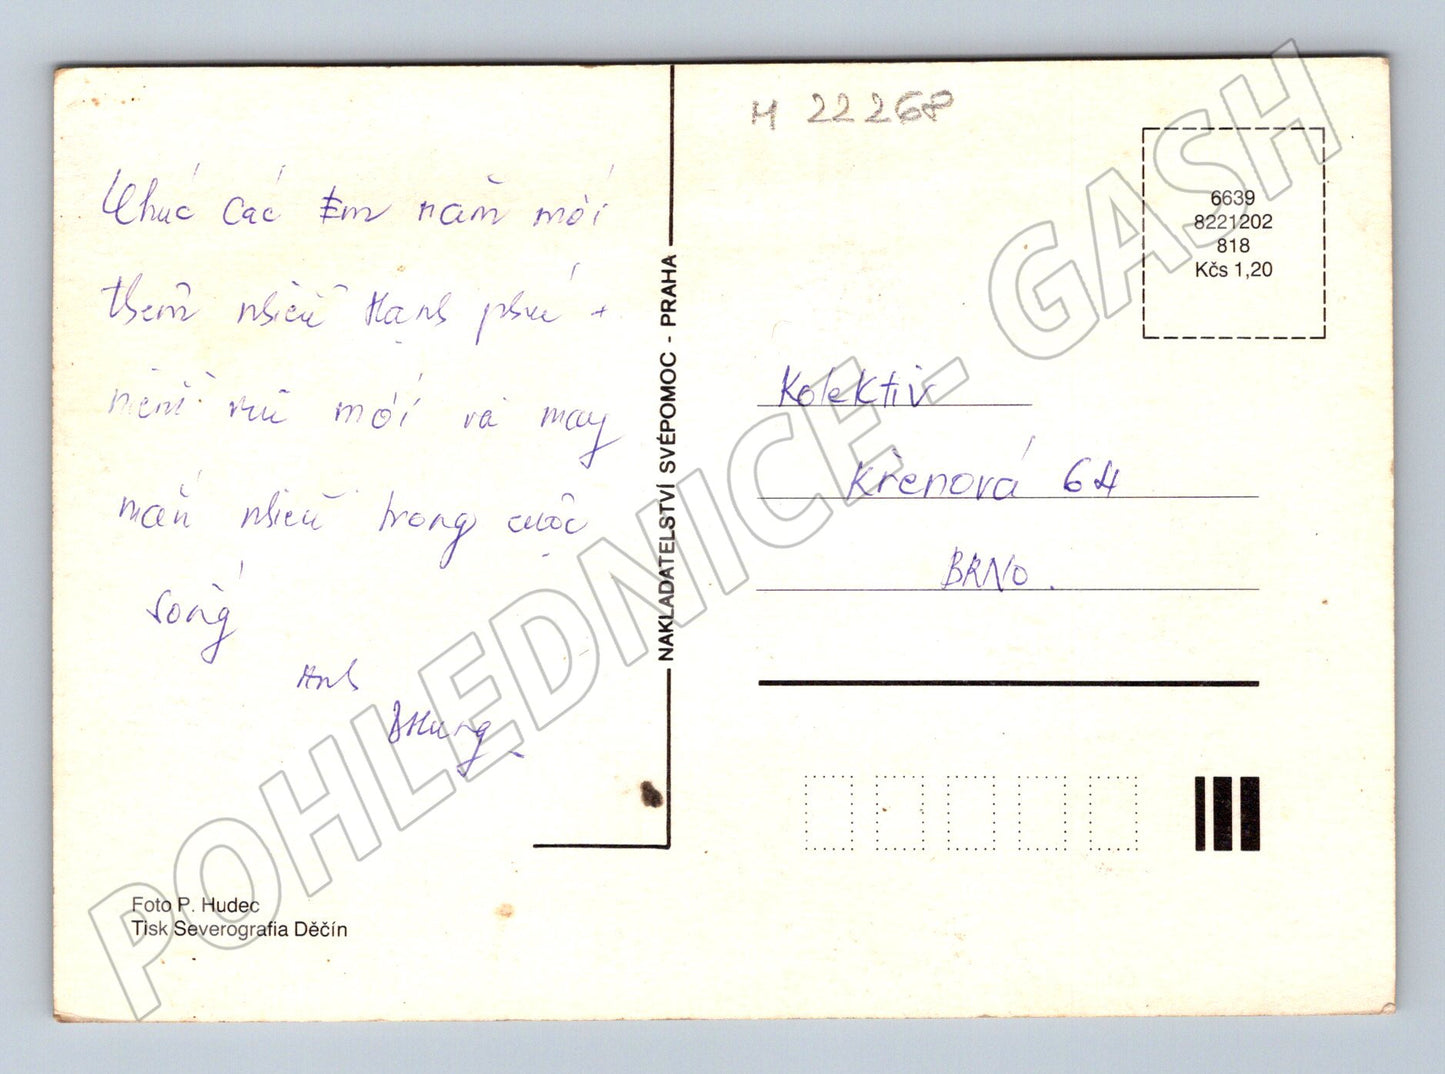 Chúc các Em năm mới
thêm nhiều Hạnh phúc +
niềm vui mới và may
mắn nhiều trong cuộc
sống
Anh
ĐHưng
Foto P. Hudec
Tisk Severografia Děčín
NAKLADATELSTVÍ SVÉPOMOC - PRAHA
M 22268
6639
8221202
818
Kčs 1,20
Kolektiv
Křenová 64
BRNO.
POHLEDNICE - GASH